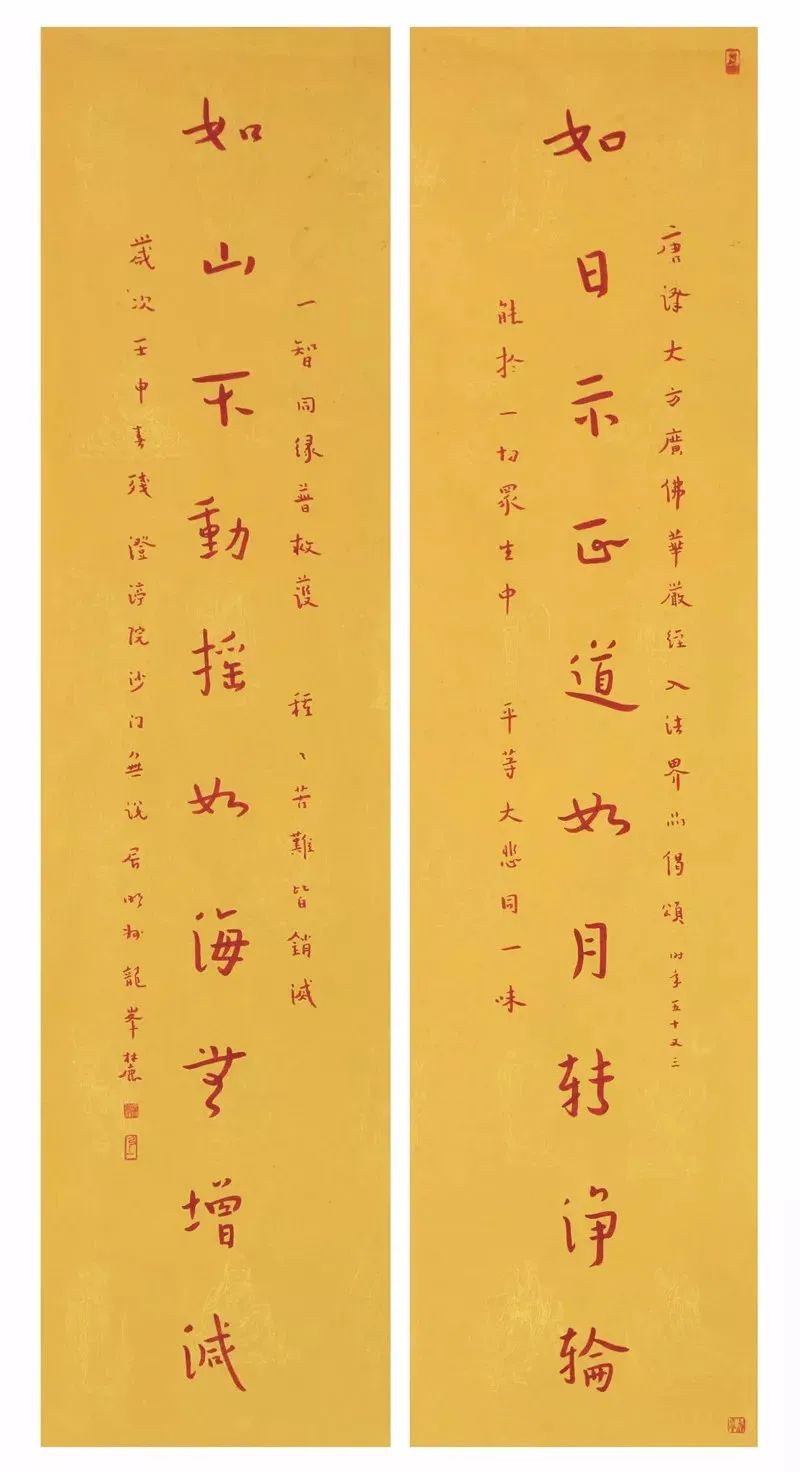 唐譯大方廣佛華嚴經入法界品偈頌 时年五十又三
如日示正道如月转淨輪
能於一切眾生中 平等大悲同一味
一智同緣普救護 種々苦難皆銷滅
如山不動摇如海無增減
歲次壬申春殘 澄渟院沙门無説居明州龍峯麓